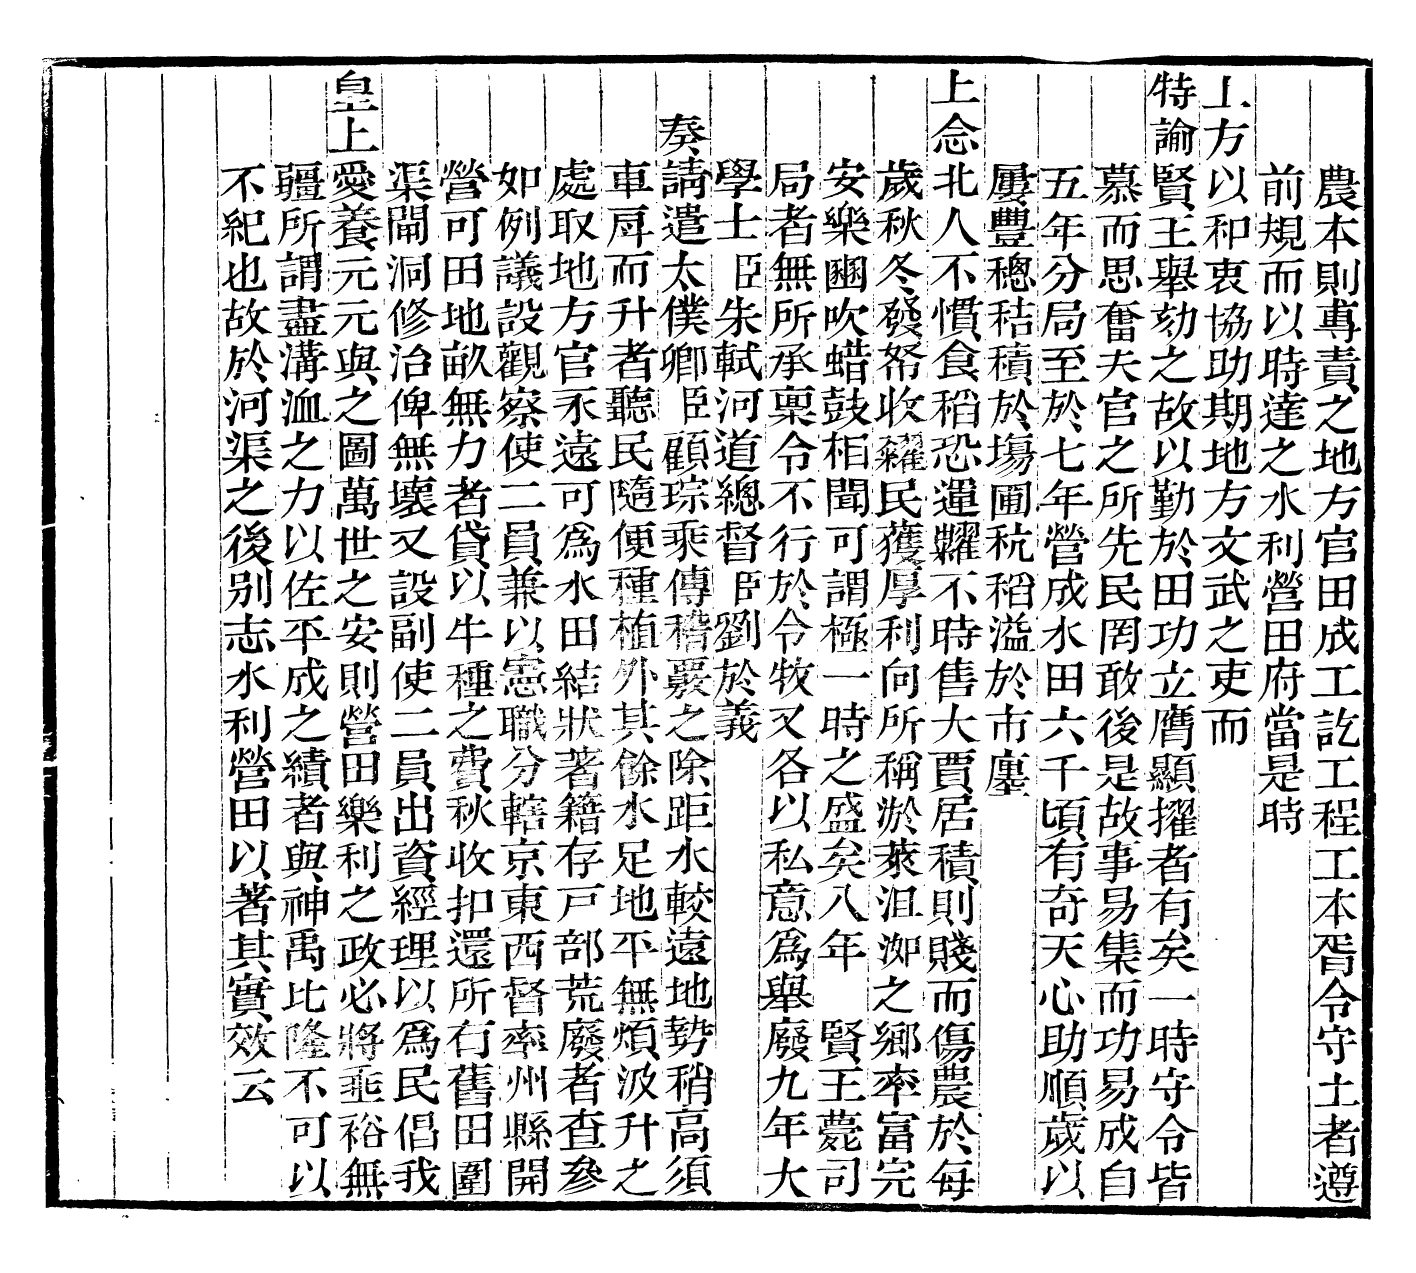 農本則專責之地方官田成工訖工程工本胥令守土者遵
前規而以時達之水利營田府當是時
上方以和衷協助期地方文武之吏而
特諭賢王舉劾之故以勤於田功立膺顯擢者有矣一時守令皆
慕而思奮夫官之所先民罔敢後是故事易集而功易成自
五年分局至於七年營成水田六千頃有奇天心助順歲以
屢豐穗秸積於場圃秔稻溢於市廛
上念北人不慣食稻恐運糶不時售大賈居積則賤而傷農於每
歲秋冬發帑收糴民獲厚利向所稱淤萊沮洳之鄉率富完
安樂豳吹蜡鼓相聞可謂極一時之盛矣八年 賢王薨司
局者無所承稟令不行於令牧又各以私意爲舉廢九年大
學士臣朱軾河道總督臣劉於義
奏請遣太僕卿臣顧琮乘傳稽覈之除距水較遠地勢稍高須
車戽而升者聽民隨便種植外其餘水足地平無煩汲升之
處取地方官永遠可爲水田結狀著籍存戸部荒廢者查參
如例議設觀察使二員兼以憲職分轄京東西督率州縣開
營可田地畝無力者貸以牛種之費秋收扣還所有舊田圍
渠閘洞修治俾無壞又設副使二員出資經理以爲民倡我
皇上愛養元元與之圖萬世之安則營田樂利之政必將垂裕無
疆所謂盡溝洫之力以佐平成之績者與神禹比隆不可以
不紀也故於河渠之後别志水利營田以著其實效云